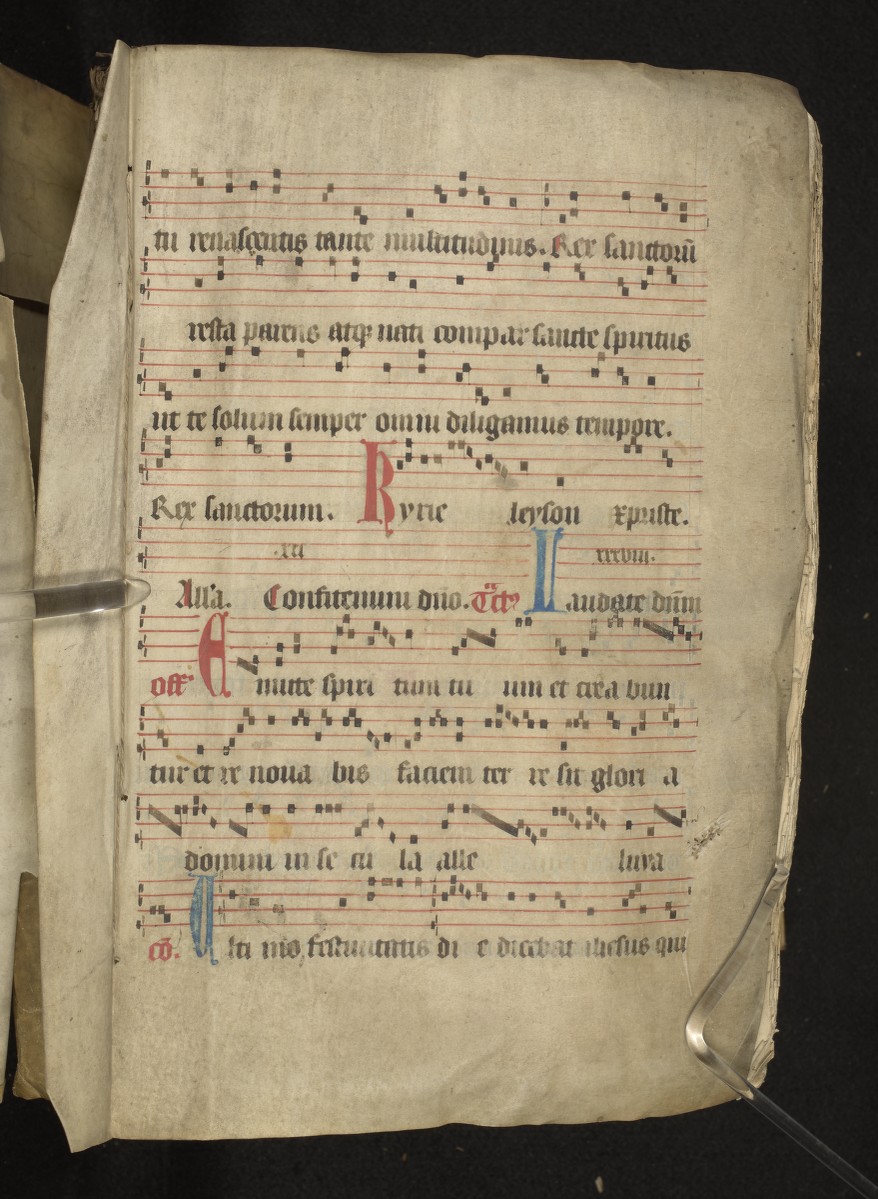 tu renascentis tante multitudinis. Rex sanctorū
resta parens atq nati compar sancte spiritus
ut te solum semper omni diligamus tempore.
Rex sanctorum. Kyrie leyson xpriste.
xcii xxxviii.
All'a. Confitemini dn̄o. Tc̄t9 Laudate dn̄m
off Emitte spiri tum tu um et crea bun
tur et re noua bis faciem ter re sit glori a
domini in se cu la alle luya
cō. Ulti mo festiuitatis di e dicebat ihesus qui